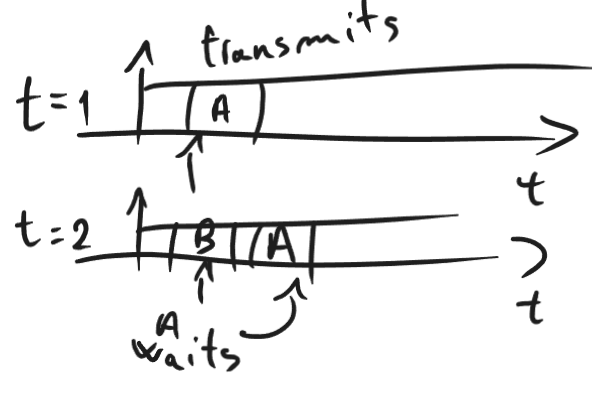 transmits
t=1
A
t
t=2
B A
t
A
waits